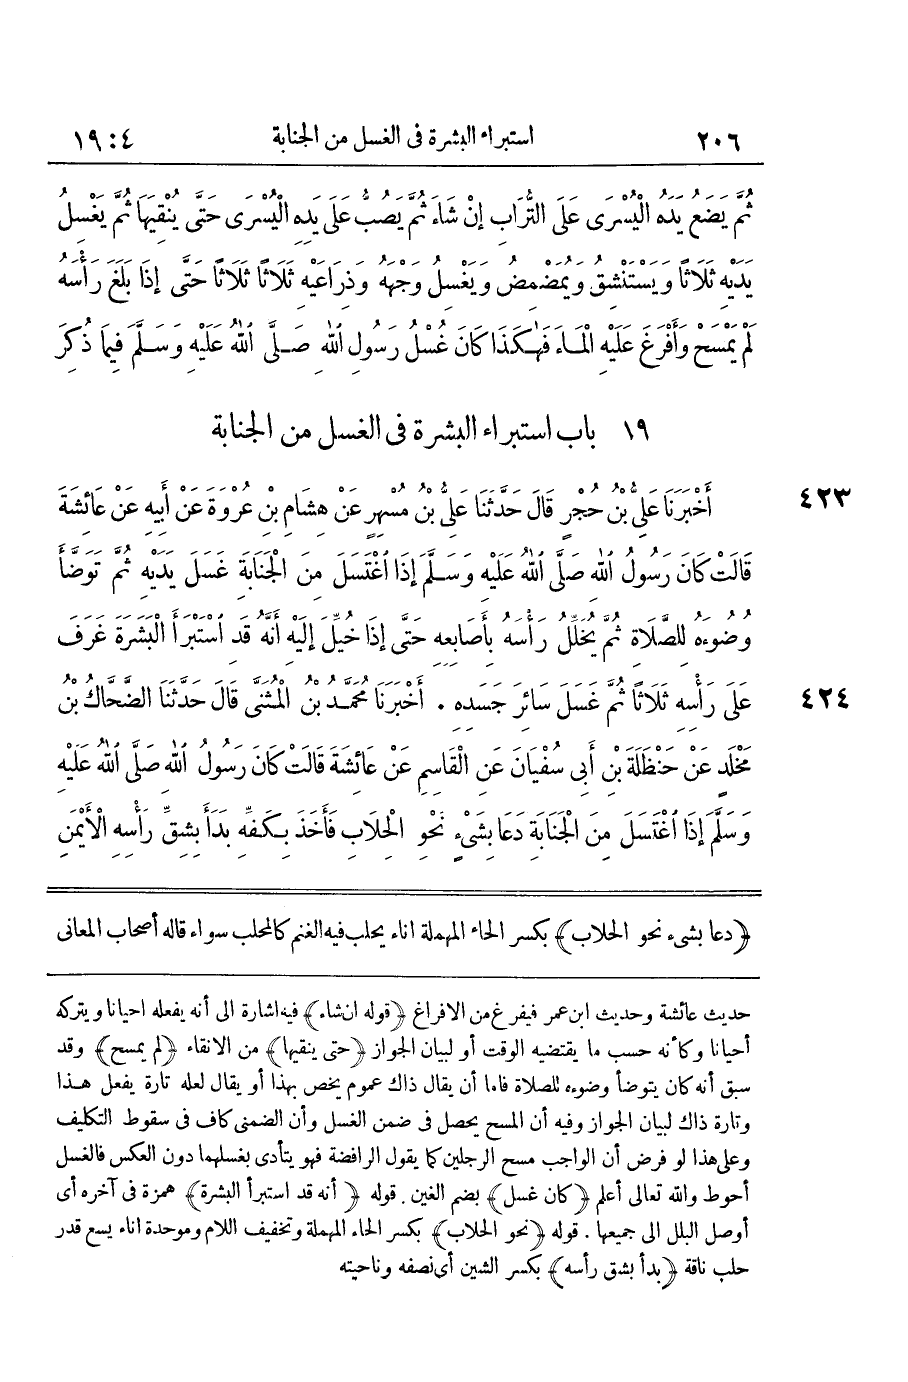 ٢٠٦ استبراء البشرة فى الغسل من الجنابة ١٩:٤
ثُمَّ يَضَعُ يَدَهُ الْيُسْرَى عَلَى التُّرَابِ إِنْ شَاءَ ثُمَّ يَصُبُّ عَلَى يَدِهِ الْيُسْرَى حَتَّى يُنْقِيَهَا ثُمَّ يَغْسِلُ
يَدَيْهِ ثَلَاثًا وَيَسْتَنْشِقُ وَيُمَضْمِضُ وَيَغْسِلُ وَجْهَهُ وَذِرَاعَيْهِ ثَلَاثًا ثَلَاثًا حَتَّى إِذَا بَلَغَ رَأْسَهُ
لَمْ يَمْسَحْ وَأَفْرَغَ عَلَيْهِ الْمَاءَ فَهٰكَذَا كَانَ غُسْلُ رَسُولِ اللهِ صَلَّى اللهُ عَلَيْهِ وَسَلَّمَ فِيمَا ذُكِرَ
١٩ باب استبراء البشرة فى الغسل من الجنابة
٤٢٣ أَخْبَرَنَا عَلِىُّ بْنُ حُجْرٍ قَالَ حَدَّثَنَا عَلِىُّ بْنُ مُسْهِرٍ عَنْ هِشَامِ بْنِ عُرْوَةَ عَنْ أَبِيهِ عَنْ عَائِشَةَ
قَالَتْ كَانَ رَسُولُ اللهِ صَلَّى اللهُ عَلَيْهِ وَسَلَّمَ إِذَا اغْتَسَلَ مِنَ الْجَنَابَةِ غَسَلَ يَدَيْهِ ثُمَّ تَوَضَّأَ
وُضُوءَهُ لِلصَّلَاةِ ثُمَّ يُخَلِّلُ رَأْسَهُ بِأَصَابِعِهِ حَتَّى إِذَا خُيِّلَ إِلَيْهِ أَنَّهُ قَدِ اسْتَبْرَأَ الْبَشَرَةَ غَرَفَ
٤٢٤ عَلَى رَأْسِهِ ثَلَاثًا ثُمَّ غَسَلَ سَائِرَ جَسَدِهِ . أَخْبَرَنَا مُحَمَّدُ بْنُ الْمُثَنَّى قَالَ حَدَّثَنَا الضَّحَّاكُ بْنُ
مَخْلَدٍ عَنْ حَنْظَلَةَ بْنِ أَبِى سُفْيَانَ عَنِ الْقَاسِمِ عَنْ عَائِشَةَ قَالَتْ كَانَ رَسُولُ اللهِ صَلَّى اللهُ عَلَيْهِ
وَسَلَّمَ إِذَا اغْتَسَلَ مِنَ الْجَنَابَةِ دَعَا بِشَىْءٍ نَحْوِ الْحِلَابِ فَأَخَذَ بِكَفِّهِ بَدَأَ بِشِقِّ رَأْسِهِ الْأَيْمَنِ
﴿دعا بشىء نحو الحلاب﴾ بكسر الحاء المهملة اناء يحلب فيه الغنم كالمحلب سواء قاله أصحاب المعانى
حديث عائشة وحديث ابن عمر فيفرغ من الافراغ ﴿قوله ان شاء﴾ فيه اشارة الى أنه يفعله احيانا ويتركه
أحيانا وكأنه حسب ما يقتضيه الوقت أو لبيان الجواز ﴿حتى ينقيها﴾ من الانقاء ﴿لم يمسح﴾ وقد
سبق أنه كان يتوضأ وضوءه للصلاة فاما أن يقال ذاك عموم يخص بهذا أو يقال لعله تارة يفعل هذا
وتارة ذاك لبيان الجواز وفيه أن المسح يحصل فى ضمن الغسل وأن الضمنى كاف فى سقوط التكليف
وعلى هذا لو فرض أن الواجب مسح الرجلين كما يقول الرافضة فهو يتأدى بغسلهما دون العكس فالغسل
أحوط والله تعالى أعلم ﴿كان غسل﴾ بضم الغين . قوله ﴿أنه قد استبرأ البشرة﴾ همزة فى آخره أى
أوصل البلل الى جميعها . قوله ﴿نحو الحلاب﴾ بكسر الحاء المهملة وتخفيف اللام وموحدة اناء يسع قدر
حلب ناقة ﴿بدأ بشق رأسه﴾ بكسر الشين أى نصفه وناحيته